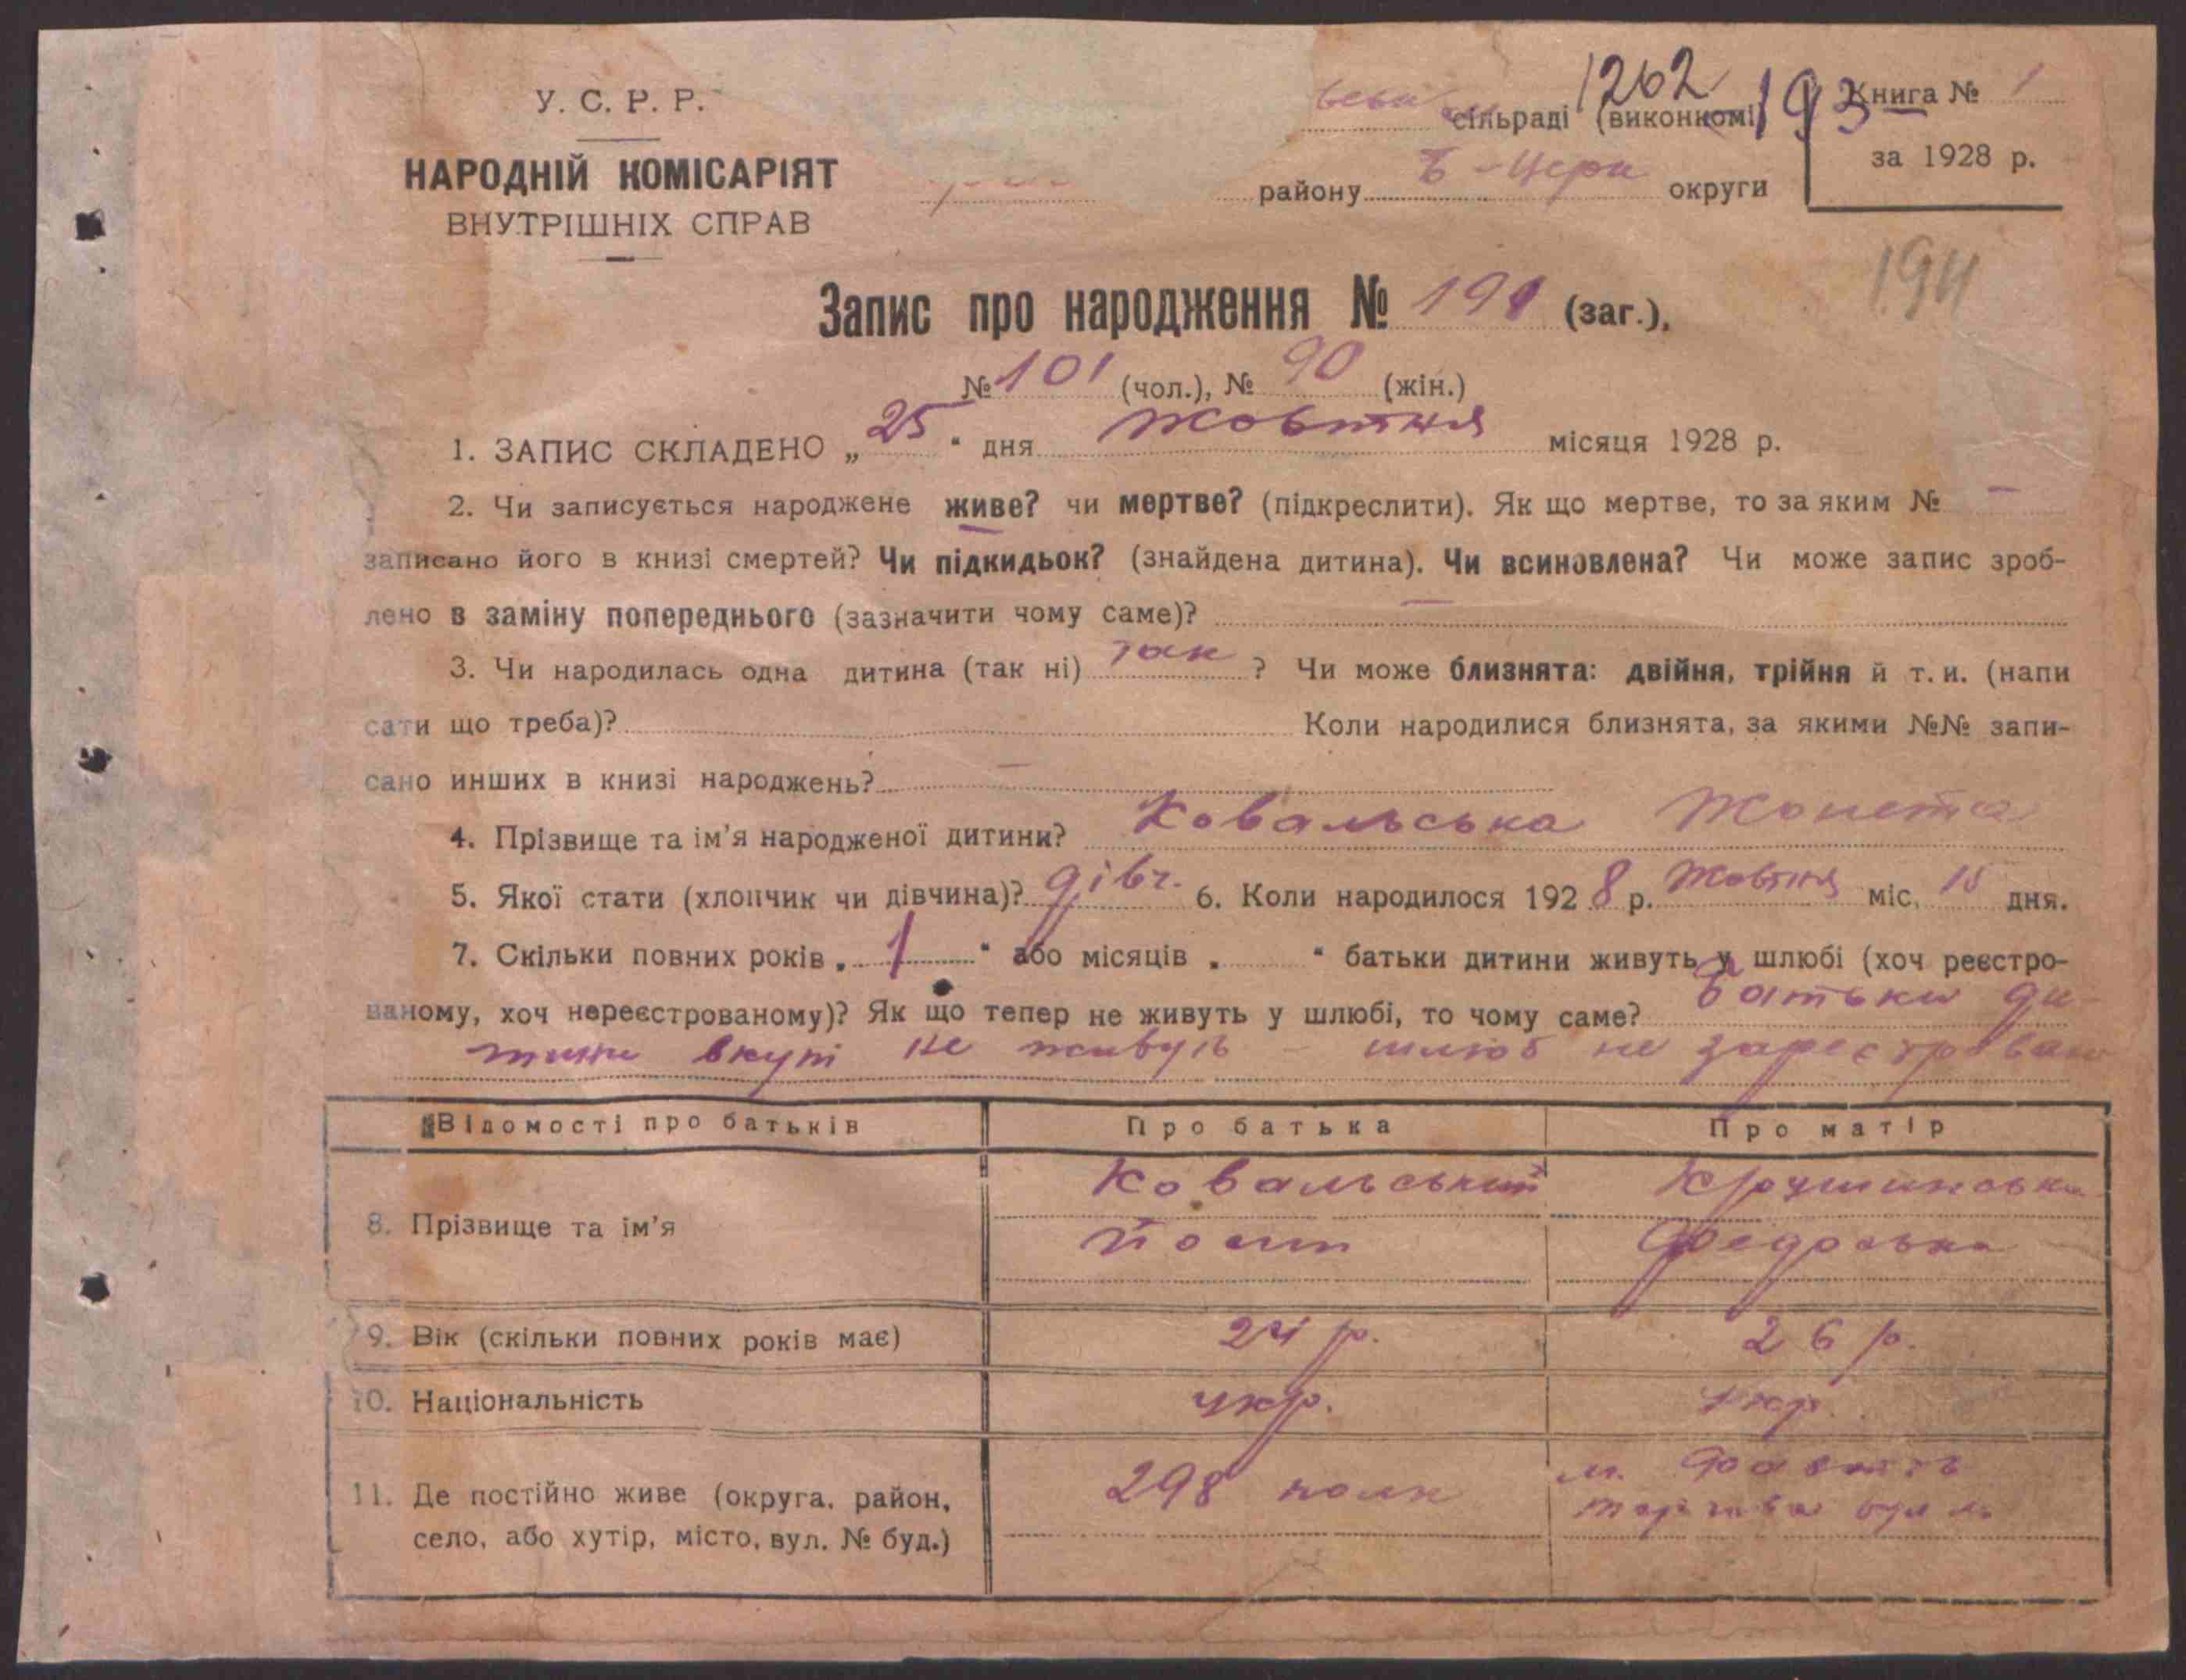 У. С. Р. Р.
НАРОДНІЙ КОМІСАРІЯТ
ВНУТРІШНІХ СПРАВ
1262
193
сільраді (виконкомі)
району Б-Церк округи
Книга № 1
за 1928 р.
194
Запис про народження № 191 (заг.),
№ 101 (чол.), № 90 (жін.)
1. ЗАПИС СКЛАДЕНО „25" дня жовтня місяця 1928 р.
2. Чи записується народжене живе? чи мертве? (підкреслити). Як що мертве, то за яким № —
записано його в книзі смертей? Чи підкидьок? (знайдена дитина). Чи всиновлена? Чи може запис зроб-
лено в заміну попереднього (зазначити чому саме)? —
3. Чи народилась одна дитина (так ні) так ? Чи може близнята: двійня, трійня й т. и. (напи
сати що треба)? Коли народилися близнята, за якими №№ запи-
сано инших в книзі народжень? —
4. Прізвище та ім'я народженої дитини? Ковальська Жонета
5. Якої стати (хлопчик чи дівчина)? дівч. 6. Коли народилося 1928 р. жовтня міс. 15 дня.
7. Скільки повних років „ 1 " або місяців „ " батьки дитини живуть у шлюбі (хоч реєстро-
ваному, хоч нереєстрованому)? Як що тепер не живуть у шлюбі, то чому саме? батьки ди-
тини вкупі не живуть - шлюб не зареєстрован
Відомості про батьків Про батька Про матір
8. Прізвище та ім'я Ковальський
Йосип Федоська
9. Вік (скільки повних років має) 24 р. 26 р.
10. Національність укр. укр.
11. Де постійно живе (округа, район, 298 полк м. Фастів
село, або хутір, місто, вул. № буд.)